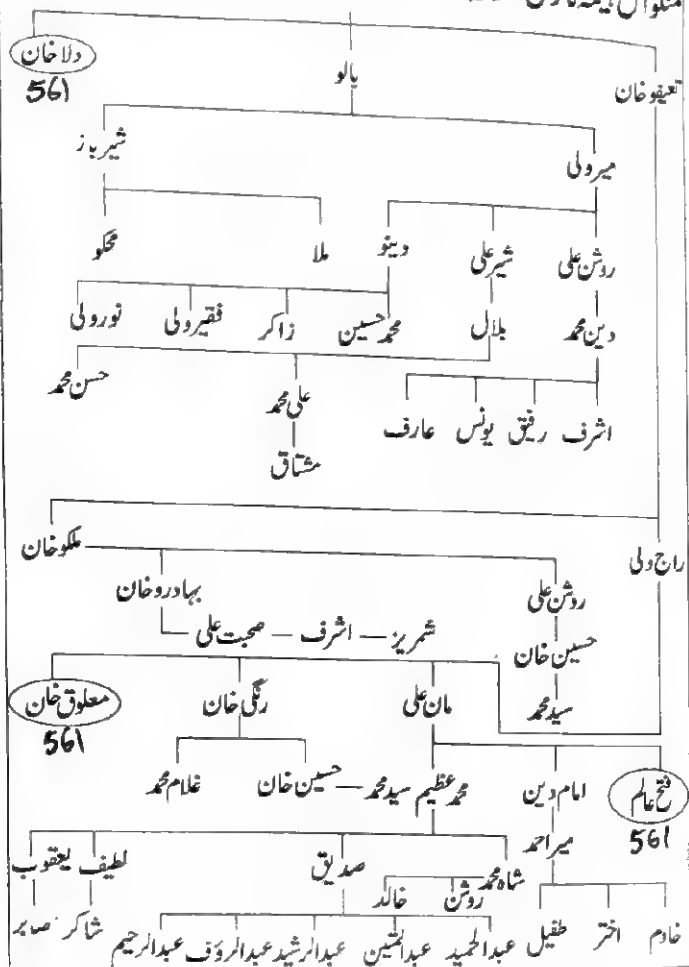 دلاخان
561
بالو
تعیفوخان
شیرباز
میرولی
محکو
ملا
دینو
شیرعلی
روشن علی
نورولی
فقیرولی
زاکر
محمدحسین
بلال
دین محمد
حسن محمد
علی محمد
عارف
یونس
رفیق
اشرف
مشتاق
ملکوخان
راج ولی
بہادروخان
روشن علی
شمریز — اشرف — صحبت علی
حسین خان
معلوق خان
561
رنگی خان
مان علی
سیدمحمد
غلام محمد
حسین خان — سیدمحمد
محمدعظیم
امام دین
فتح عالم
561
میراحمد
لطیف
یعقوب
صدیق
شاہ محمد
خالد
روشن
شاکر
صدیر
عبدالرحیم
عبدالرؤف
عبدالرشید
عبدالمتین
عبدالحمید
طفیل
اختر
خادم